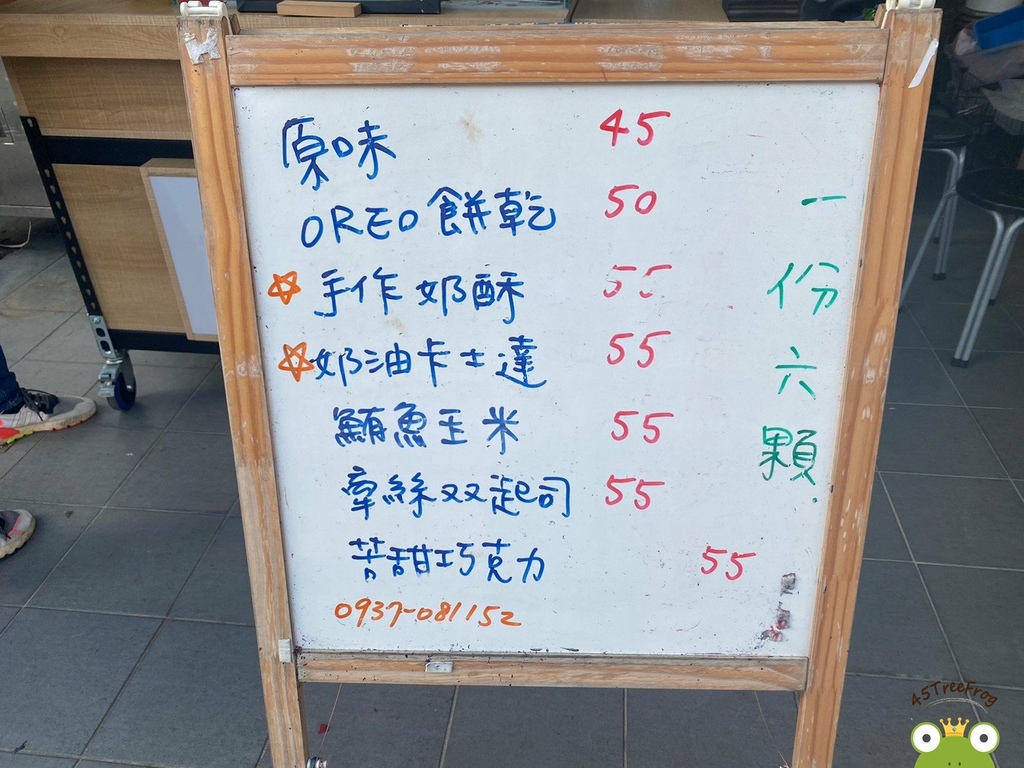 原味 45
OREO餅乾 50
☆手作奶酥 55
☆奶油卡士達 55
鮪魚玉米 55
牽絲双起司 55
苦甜巧克力 55
0937-081152
一份六顆.
45TreeFrog